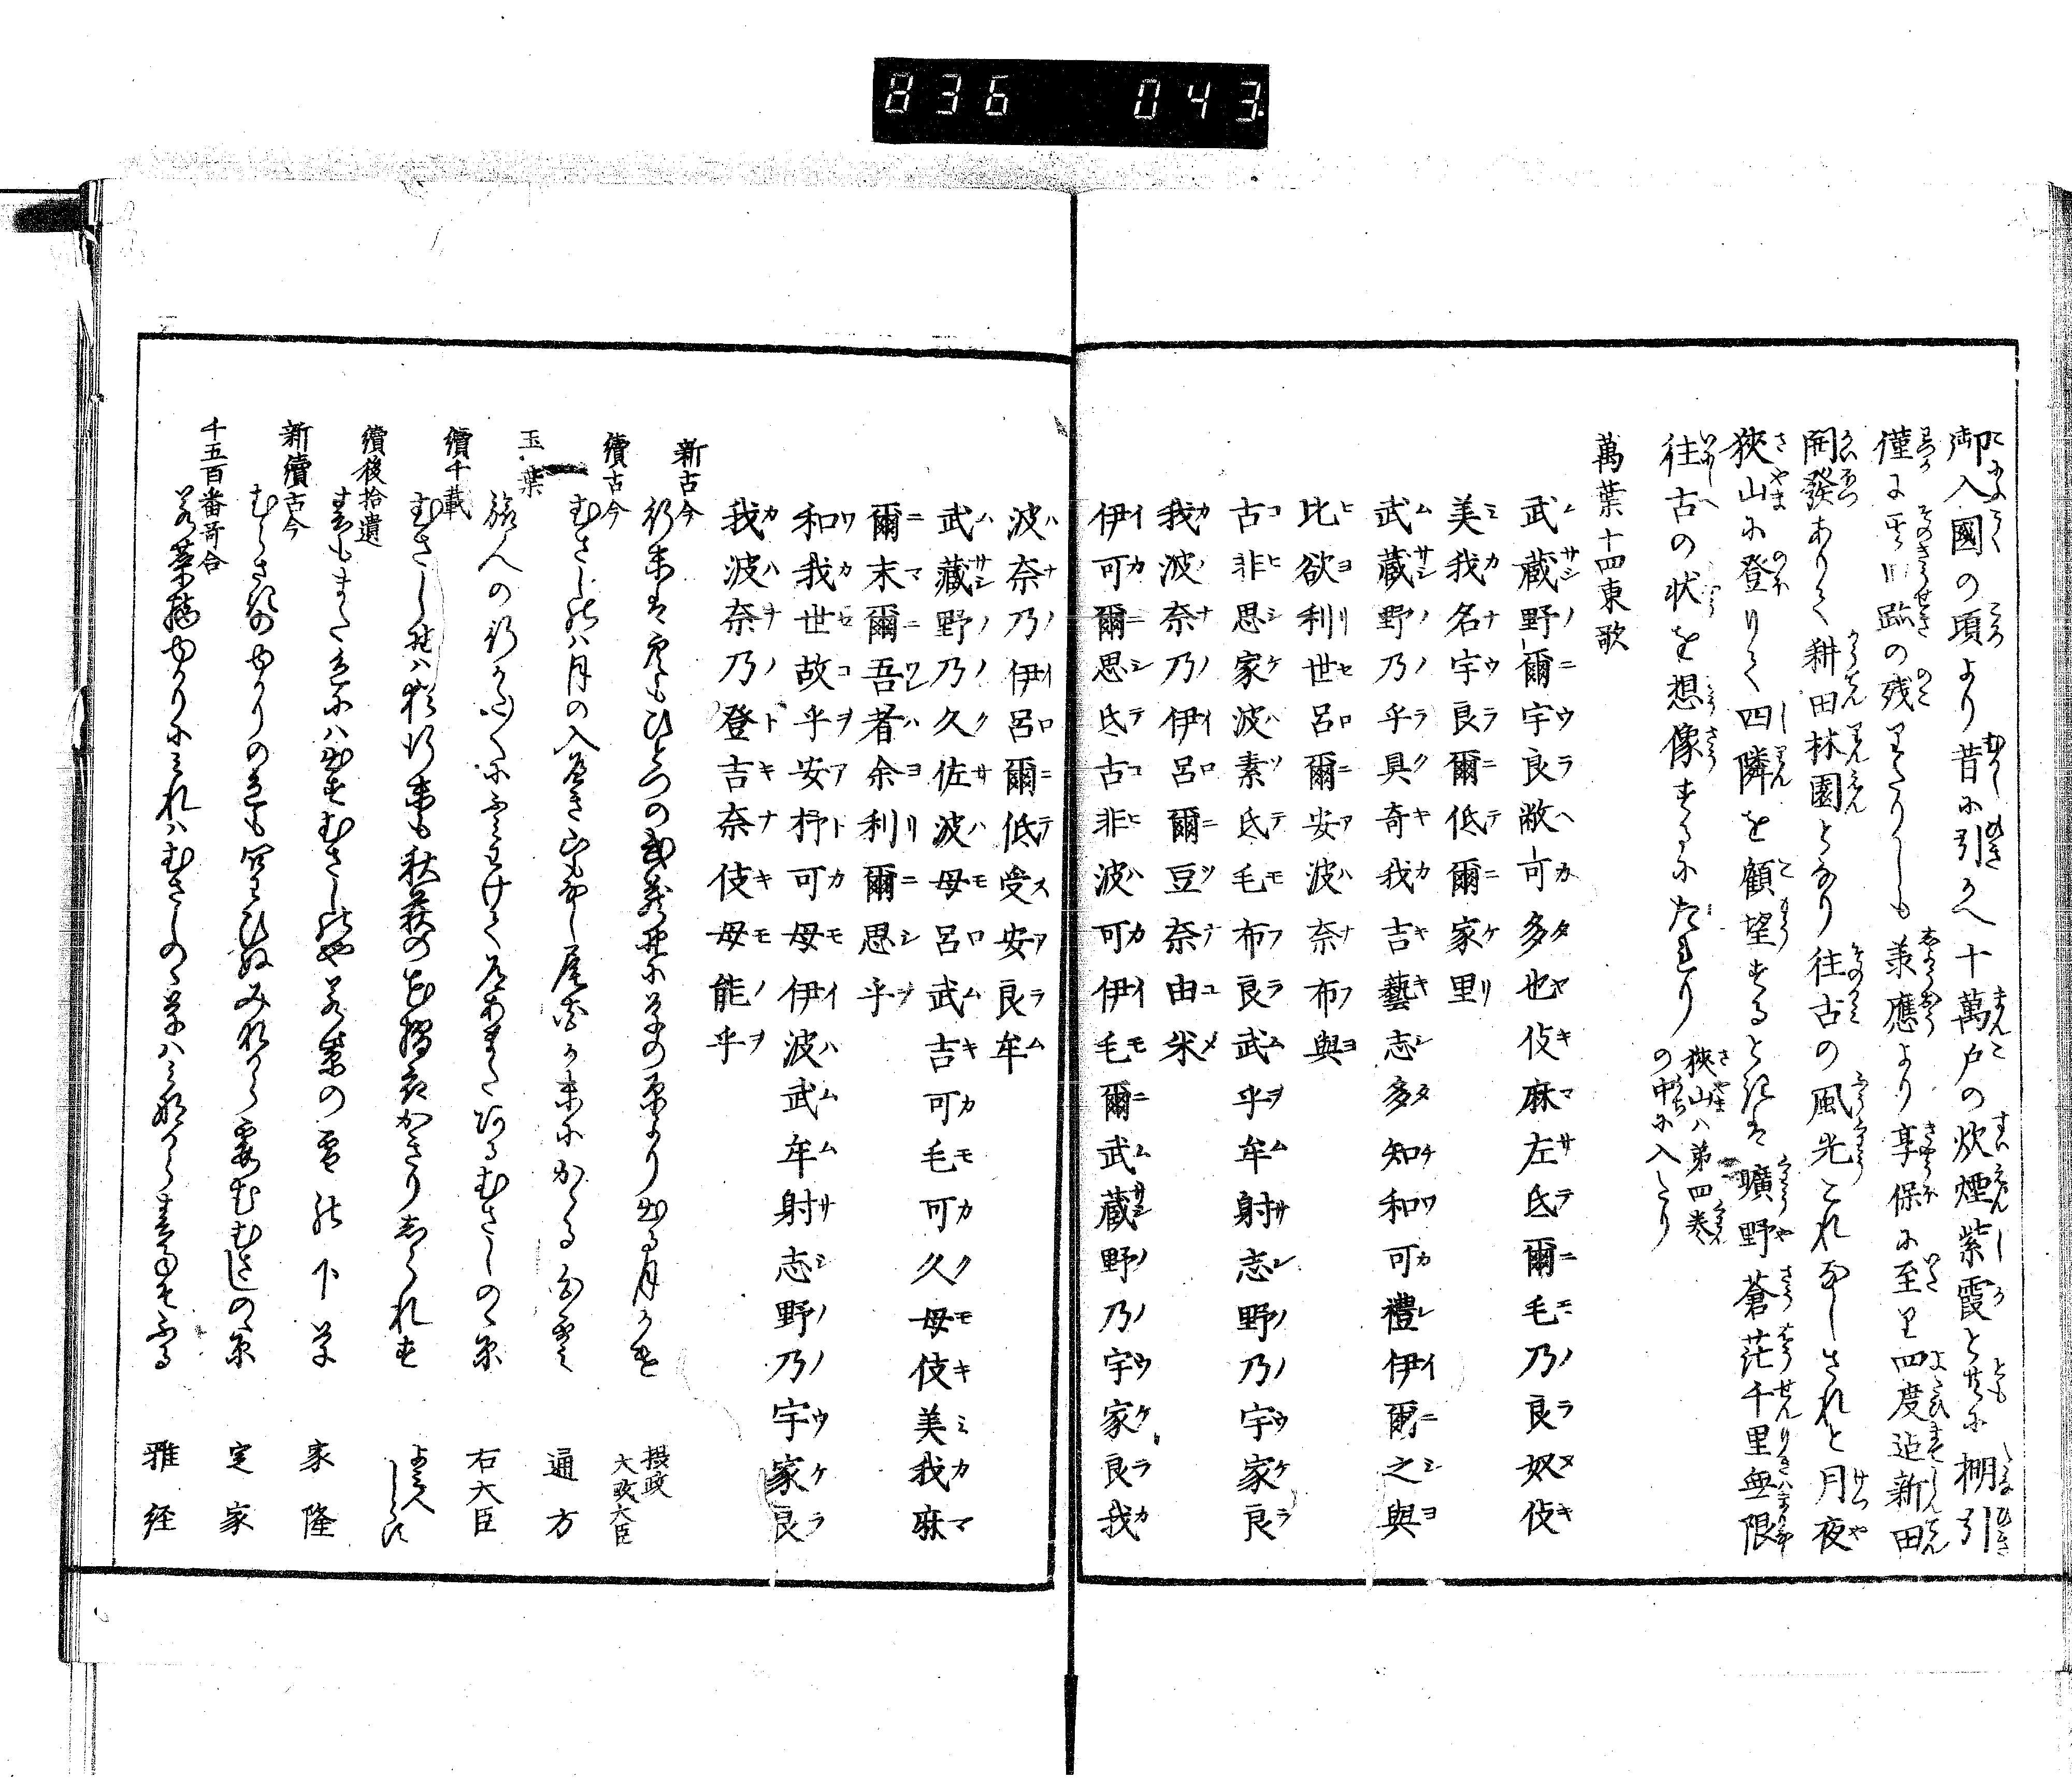 836 043
御入國の頃より昔に引かへ十萬戸の炊煙紫霞とともに棚引
僅に其旧跡の残りたりしも承應より享保に至り四度迄新田
開發ありて耕田林園となり往古の風光これなしされと月夜
狭山に登りて四隣を顧望するときは曠野蒼茫千里無限
往古の状を想像するにたれり
狭山ハ第四巻
の中に入たり
萬葉十四東歌
武蔵野爾宇良敝可多也伎麻左氐爾毛乃良奴伎
美我名宇良爾低爾家里
武蔵野乃乎具奇我吉藝志多知和可禮伊爾之與
比欲利世呂爾安波奈布與
古非思家波素氐毛布良武乎牟射志野乃宇家良
我波奈乃伊呂爾豆奈由米
伊可爾思氐古非波可伊毛爾武蔵野乃宇家良我
波奈乃伊呂爾低受安良牟
武蔵野乃久佐波母呂武吉可毛可久母伎美我麻
爾末爾吾者余利爾思乎
和我世故乎安杼可母伊波武牟射志野乃宇家良
我波奈乃登吉奈伎母能乎
新古今
行末は空もひとつの武蔵野に草の原より出る月かけ
摂政
太政大臣
續古今
むさし野ハ月の入へき山もなし尾花か末にかゝる白雲
通方
玉葉
旅人の行かた〱にふみわけて道あまたあるむさしのゝ原
右大臣
續千載
むさし野ハ
行末も秋萩の花摺衣かきりしられす
よみ人しらす
續後拾遺
若紫の雪の下草
家隆
新續古今
むらさきのゆかりの色も問わひぬみなから霞むむさしのゝ原
定家
千五百番哥合
若菜摘ゆかりにみれハむさしのゝ草ハみなから春雨そふる
雅経